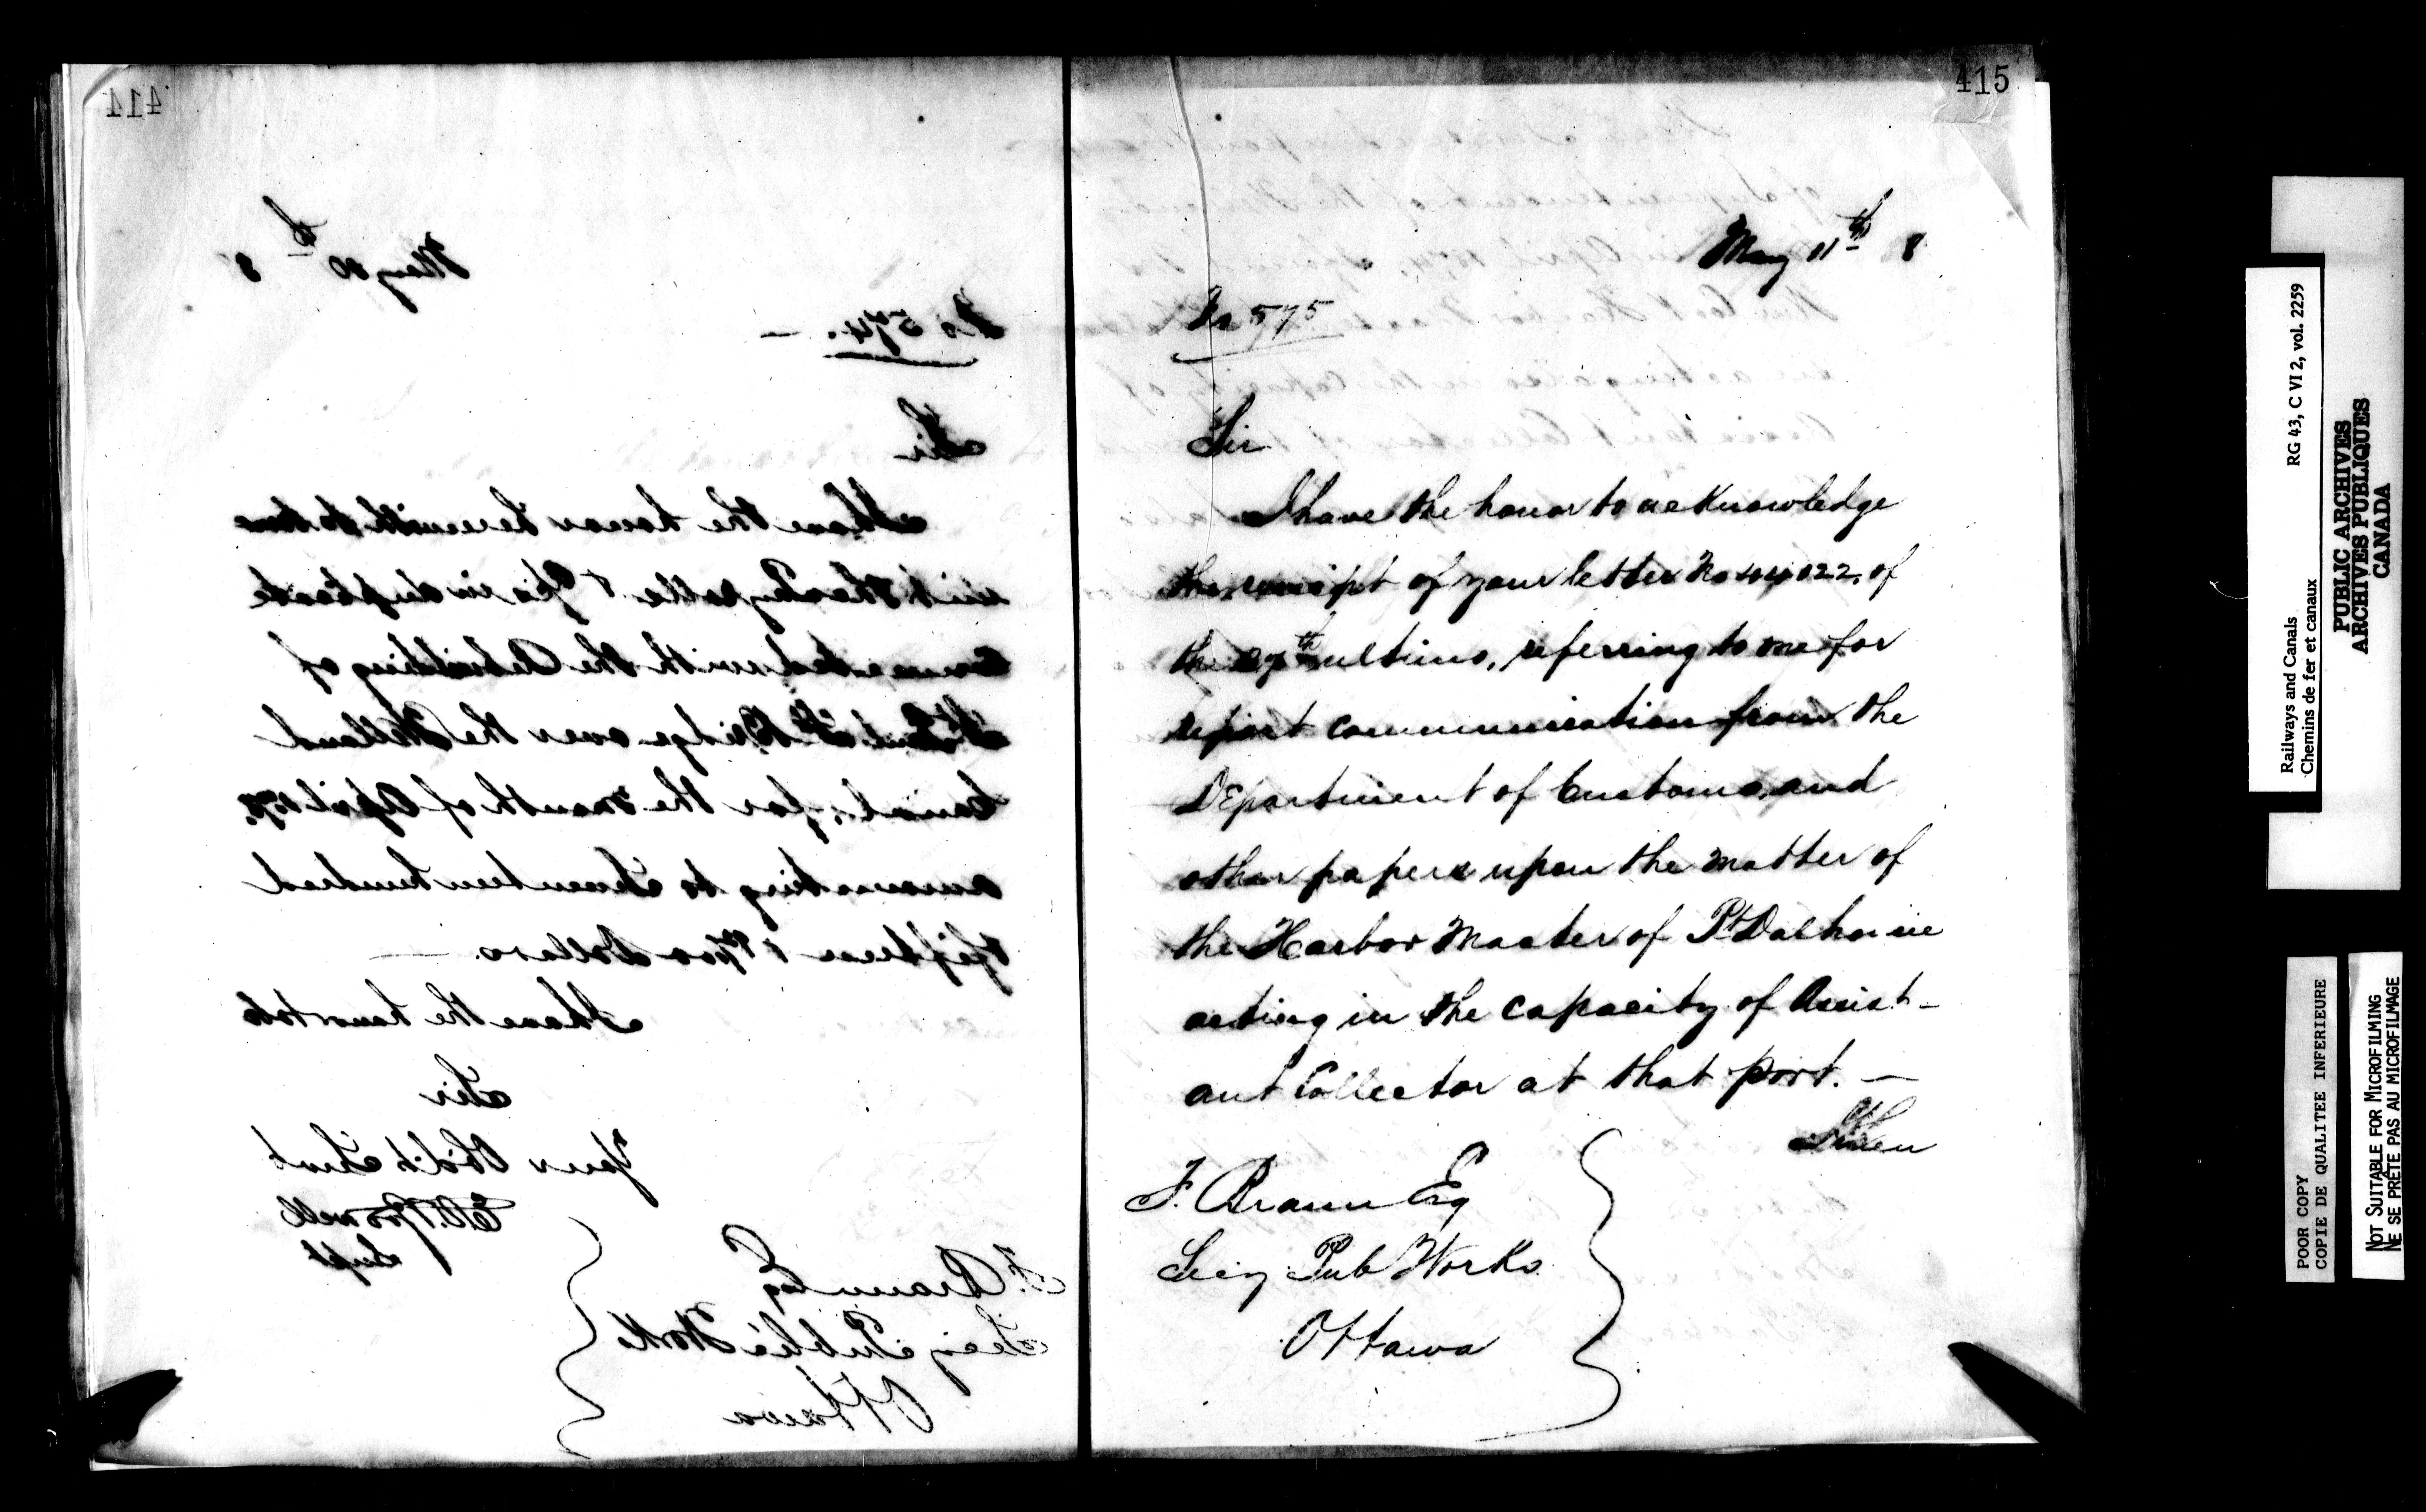 414
May 10th 8
No 574. —
Sir
I have the honor herewith to
with the Paysheets & in duplicate
connected with the Rebuilding of
Bridge over the Welland
Canal, for the month of April 1878,
amounting to Seventeen hundred
& fifteen /100 Dollars. —
I have the honor to be
Sir
Your Obdt Servt
Supt
F. Braun Esq
Secy Public Works
Ottawa
415
May 11th 8
No 575
Sir
I have the honor to acknowledge
the receipt of your letter No 44022, of
the ultimo, referring to me for
report communication from the
Department of Customs, and
other papers upon the matter of
the Harbor Master of Pt Dalhousie
acting in the capacity of Assist-
ant Collector at that port. —
When
F. Braun Esq
Secy Pub Works
Ottawa
Railways and Canals RG 43, C VI 2, vol. 2259
Chemins de fer et canaux
PUBLIC ARCHIVES
ARCHIVES PUBLIQUES
CANADA
POOR COPY
COPIE DE QUALITEE INFERIEURE
NOT SUITABLE FOR MICROFILMING
NE SE PRÊTE PAS AU MICROFILMAGE